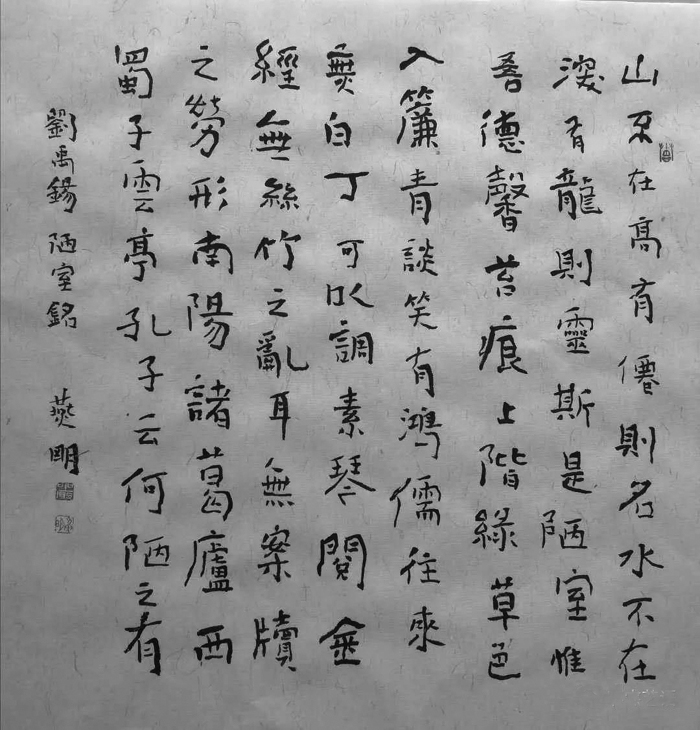 山不在高有僊則名水不在
深有龍則靈斯是陋室惟
吾德馨苔痕上階綠草色
入簾青談笑有鴻儒往來
無白丁可以調素琴閱金
經無絲竹之亂耳無案牘
之勞形南陽諸葛廬西
蜀子雲亭孔子云何陋之有
劉禹錫陋室銘 燕明